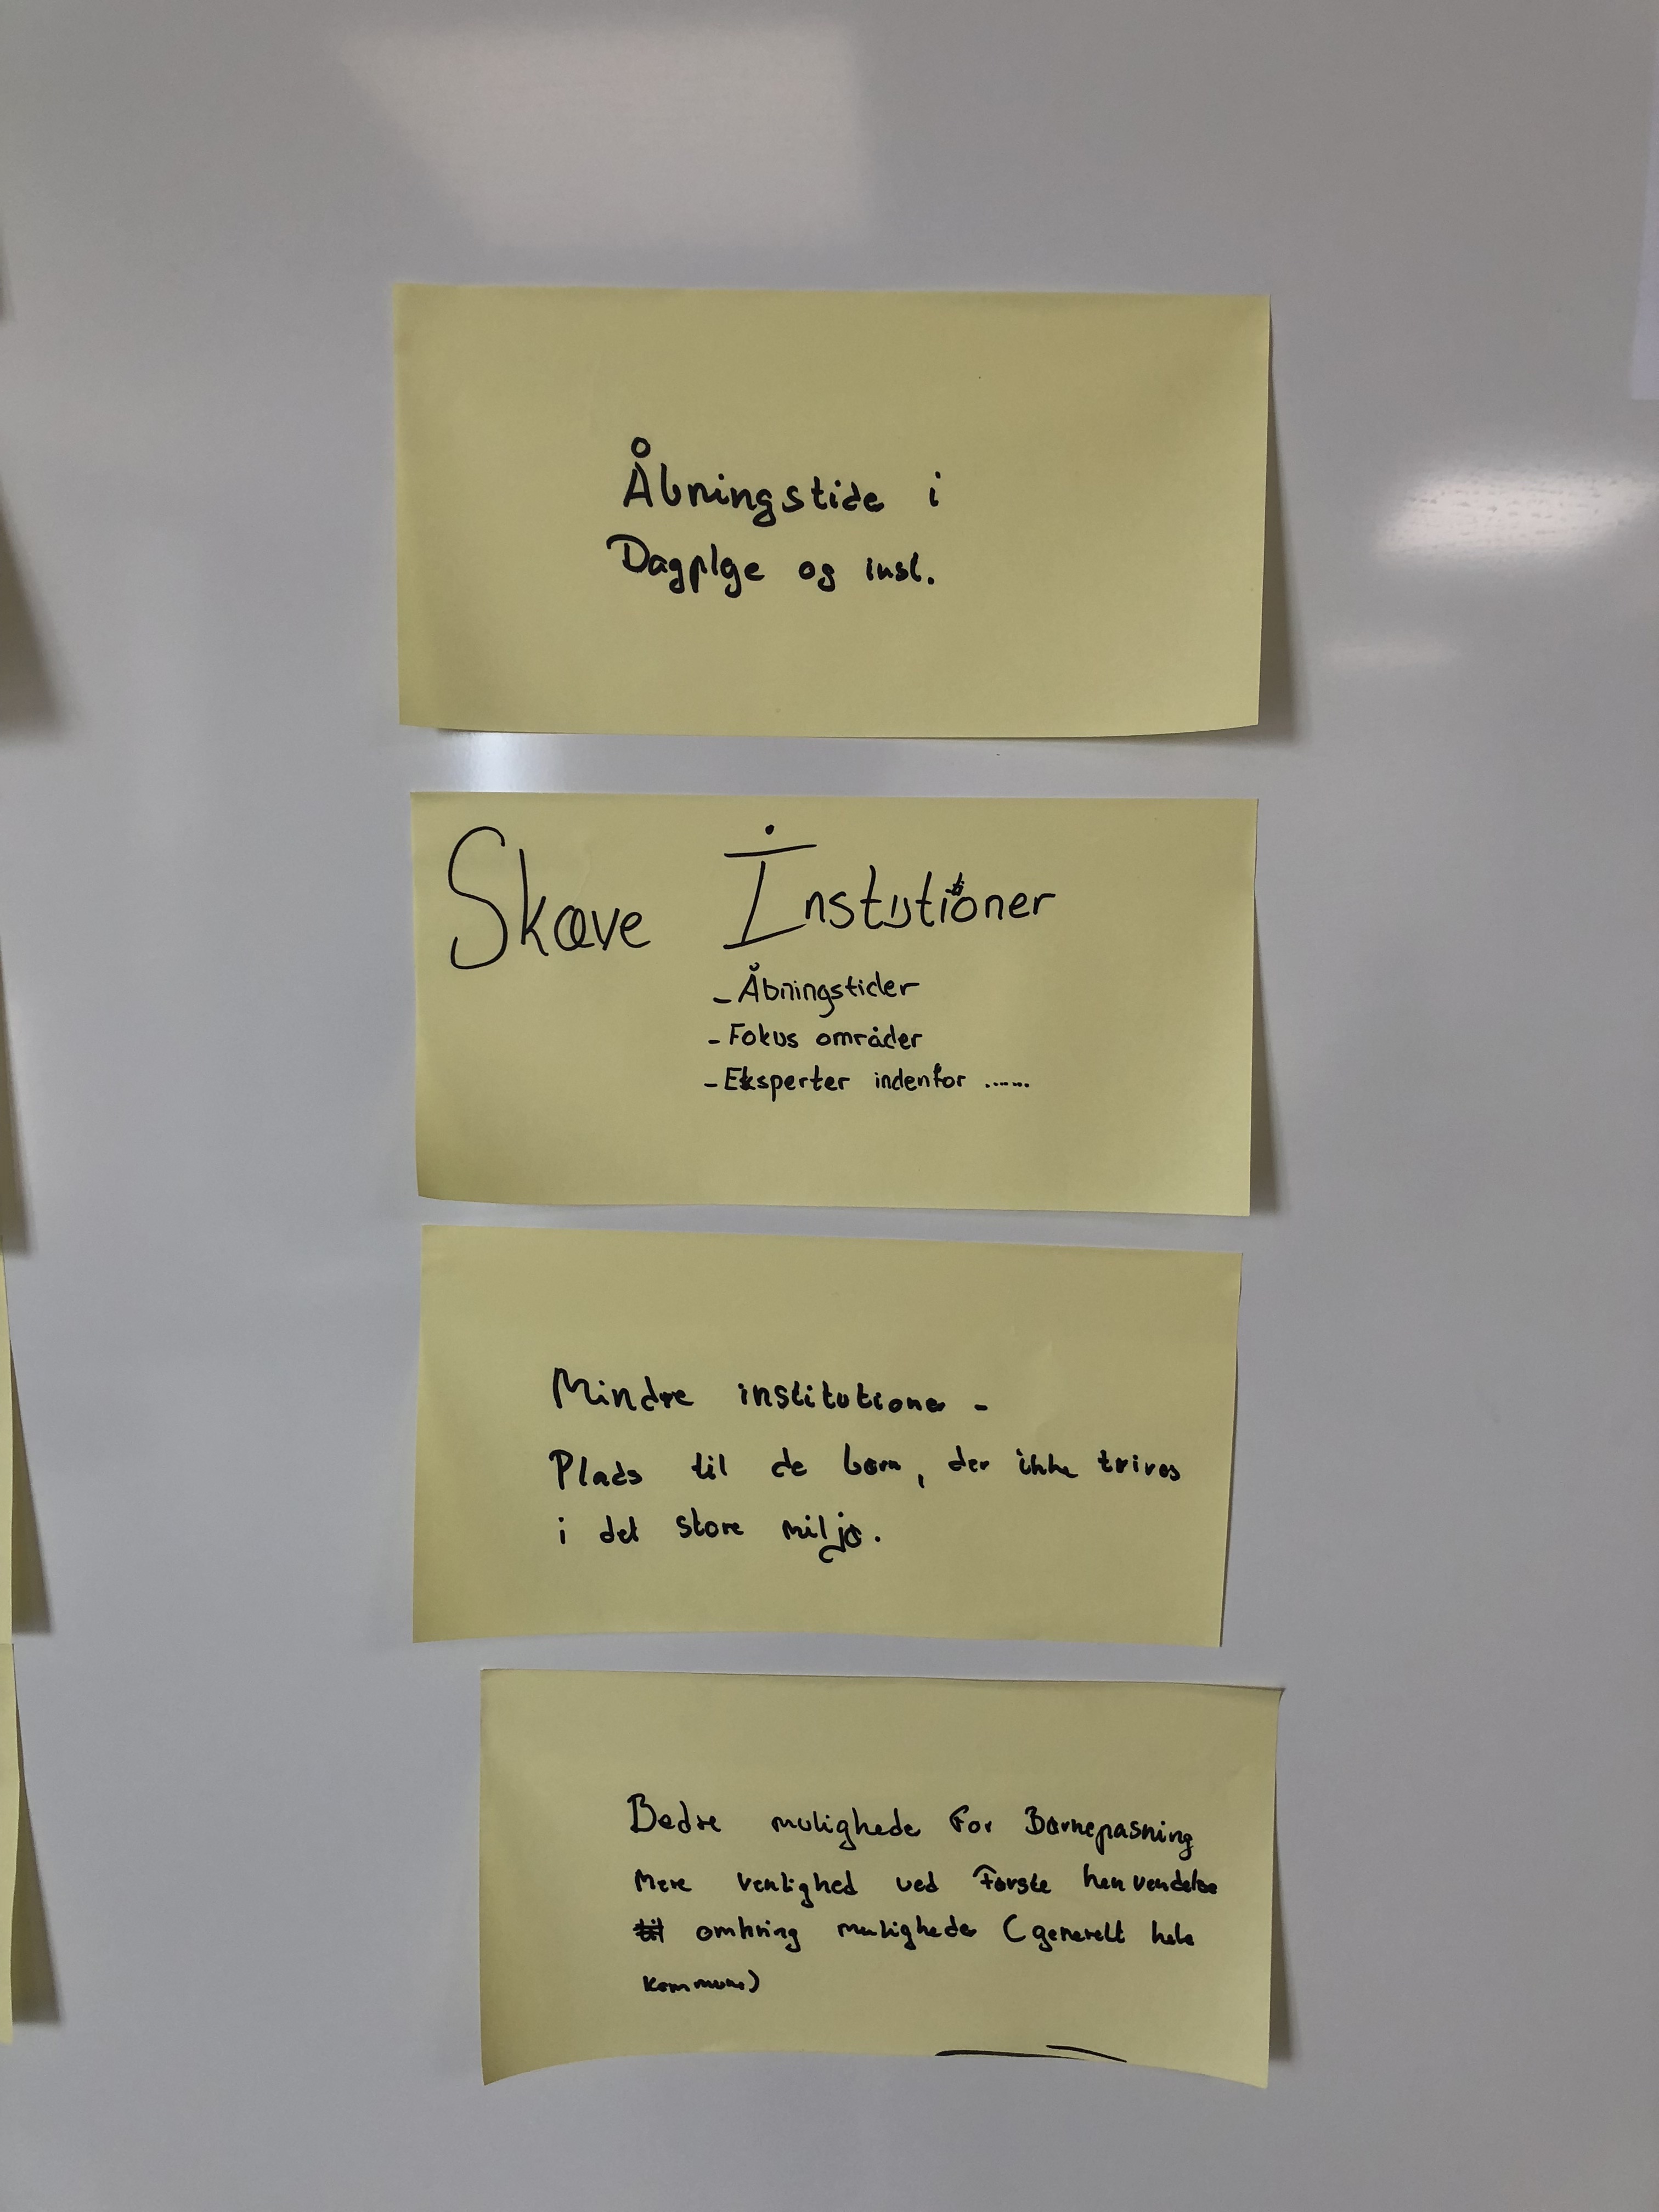 Åbningstide i
Dagplge og inst.
Skæve Institutioner
- Åbningstider
- Fokus områder
- Eksperter indenfor ......
Mindre institutioner -
Plads til de børn, der ikke trives
i det store miljø.
Bedre mulighede for Børnepasning
Mere venlighed ved Første henvendelse
omkring muligheder (generelt hele
kommune)